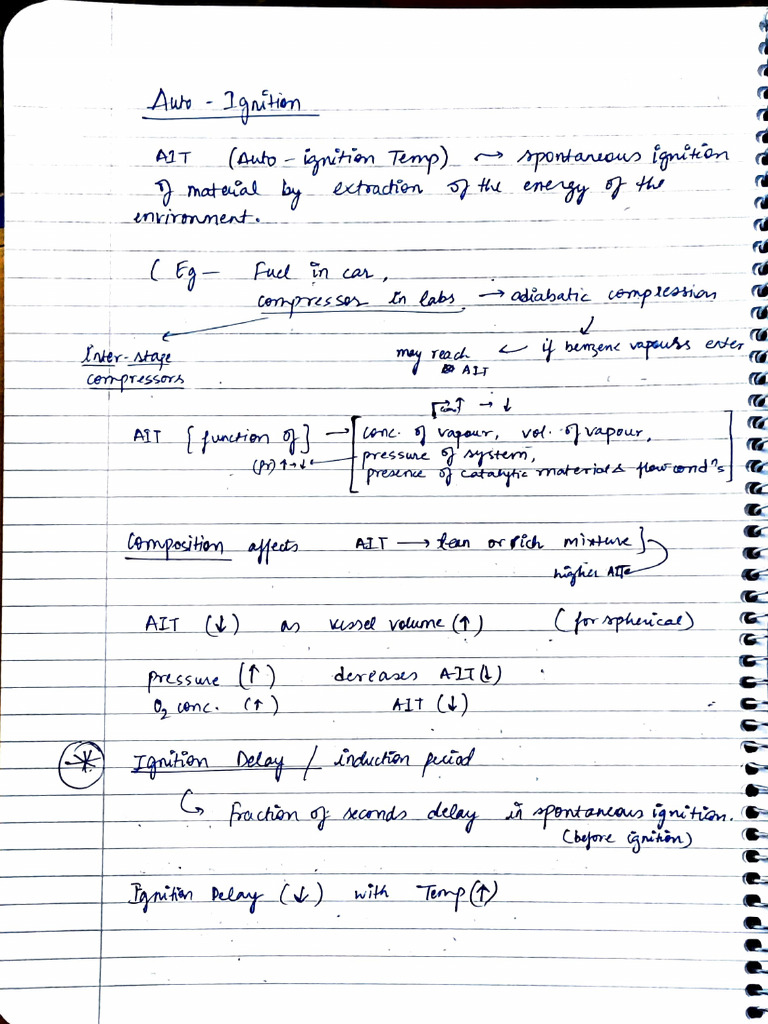 Auto - Ignition
AIT (Auto - ignition Temp) ⇝ spontaneous ignition
of material by extraction of the energy of the
environment.
( Eg — Fuel in car,
compressor in labs → adiabatic compression
Inter-stage
compressors
may reach ← if benzene vapours enter
AIT
↑ → ↓
AIT [function of] → [conc. of vapour, vol. of vapour,
(pr) ↑→↓ ← pressure of system,
presence of catalytic material & flow condⁿs]
Composition affects AIT → lean or rich mixture]
higher AITs
AIT (↓) as vessel volume (↑) (for spherical)
pressure (↑) decreases AIT (↓)
O₂ conc. (↑) AIT (↓)
* Ignition Delay / induction period
↳ fraction of seconds delay in spontaneous ignition.
(before ignition)
Ignition Delay (↓) with Temp (↑)